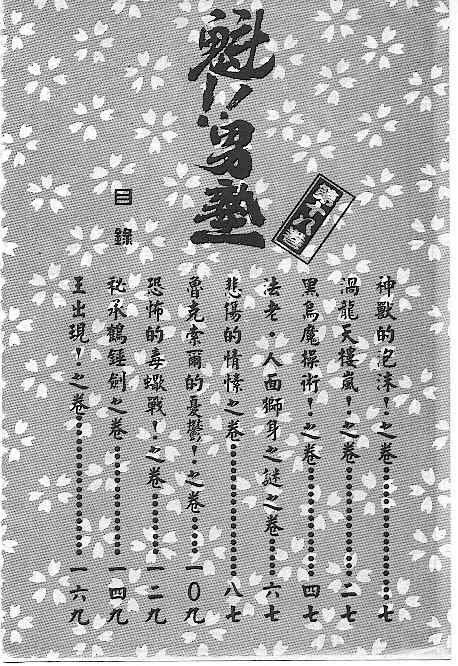 魁!!男塾
第十八卷
目錄
神獸的泡沫!之卷……………七
渦龍天樓嵐!之卷……………二七
黑烏魔操術!之卷……………四七
法老・人面獅身之謎之卷……………六七
悲傷的情愫之卷……………八七
魯克索爾的憂鬱!之卷……………一〇九
恐怖的毒蠍戰!之卷……………一二九
祕承鶴錘劍之卷……………一四九
王出現!之卷……………一六九